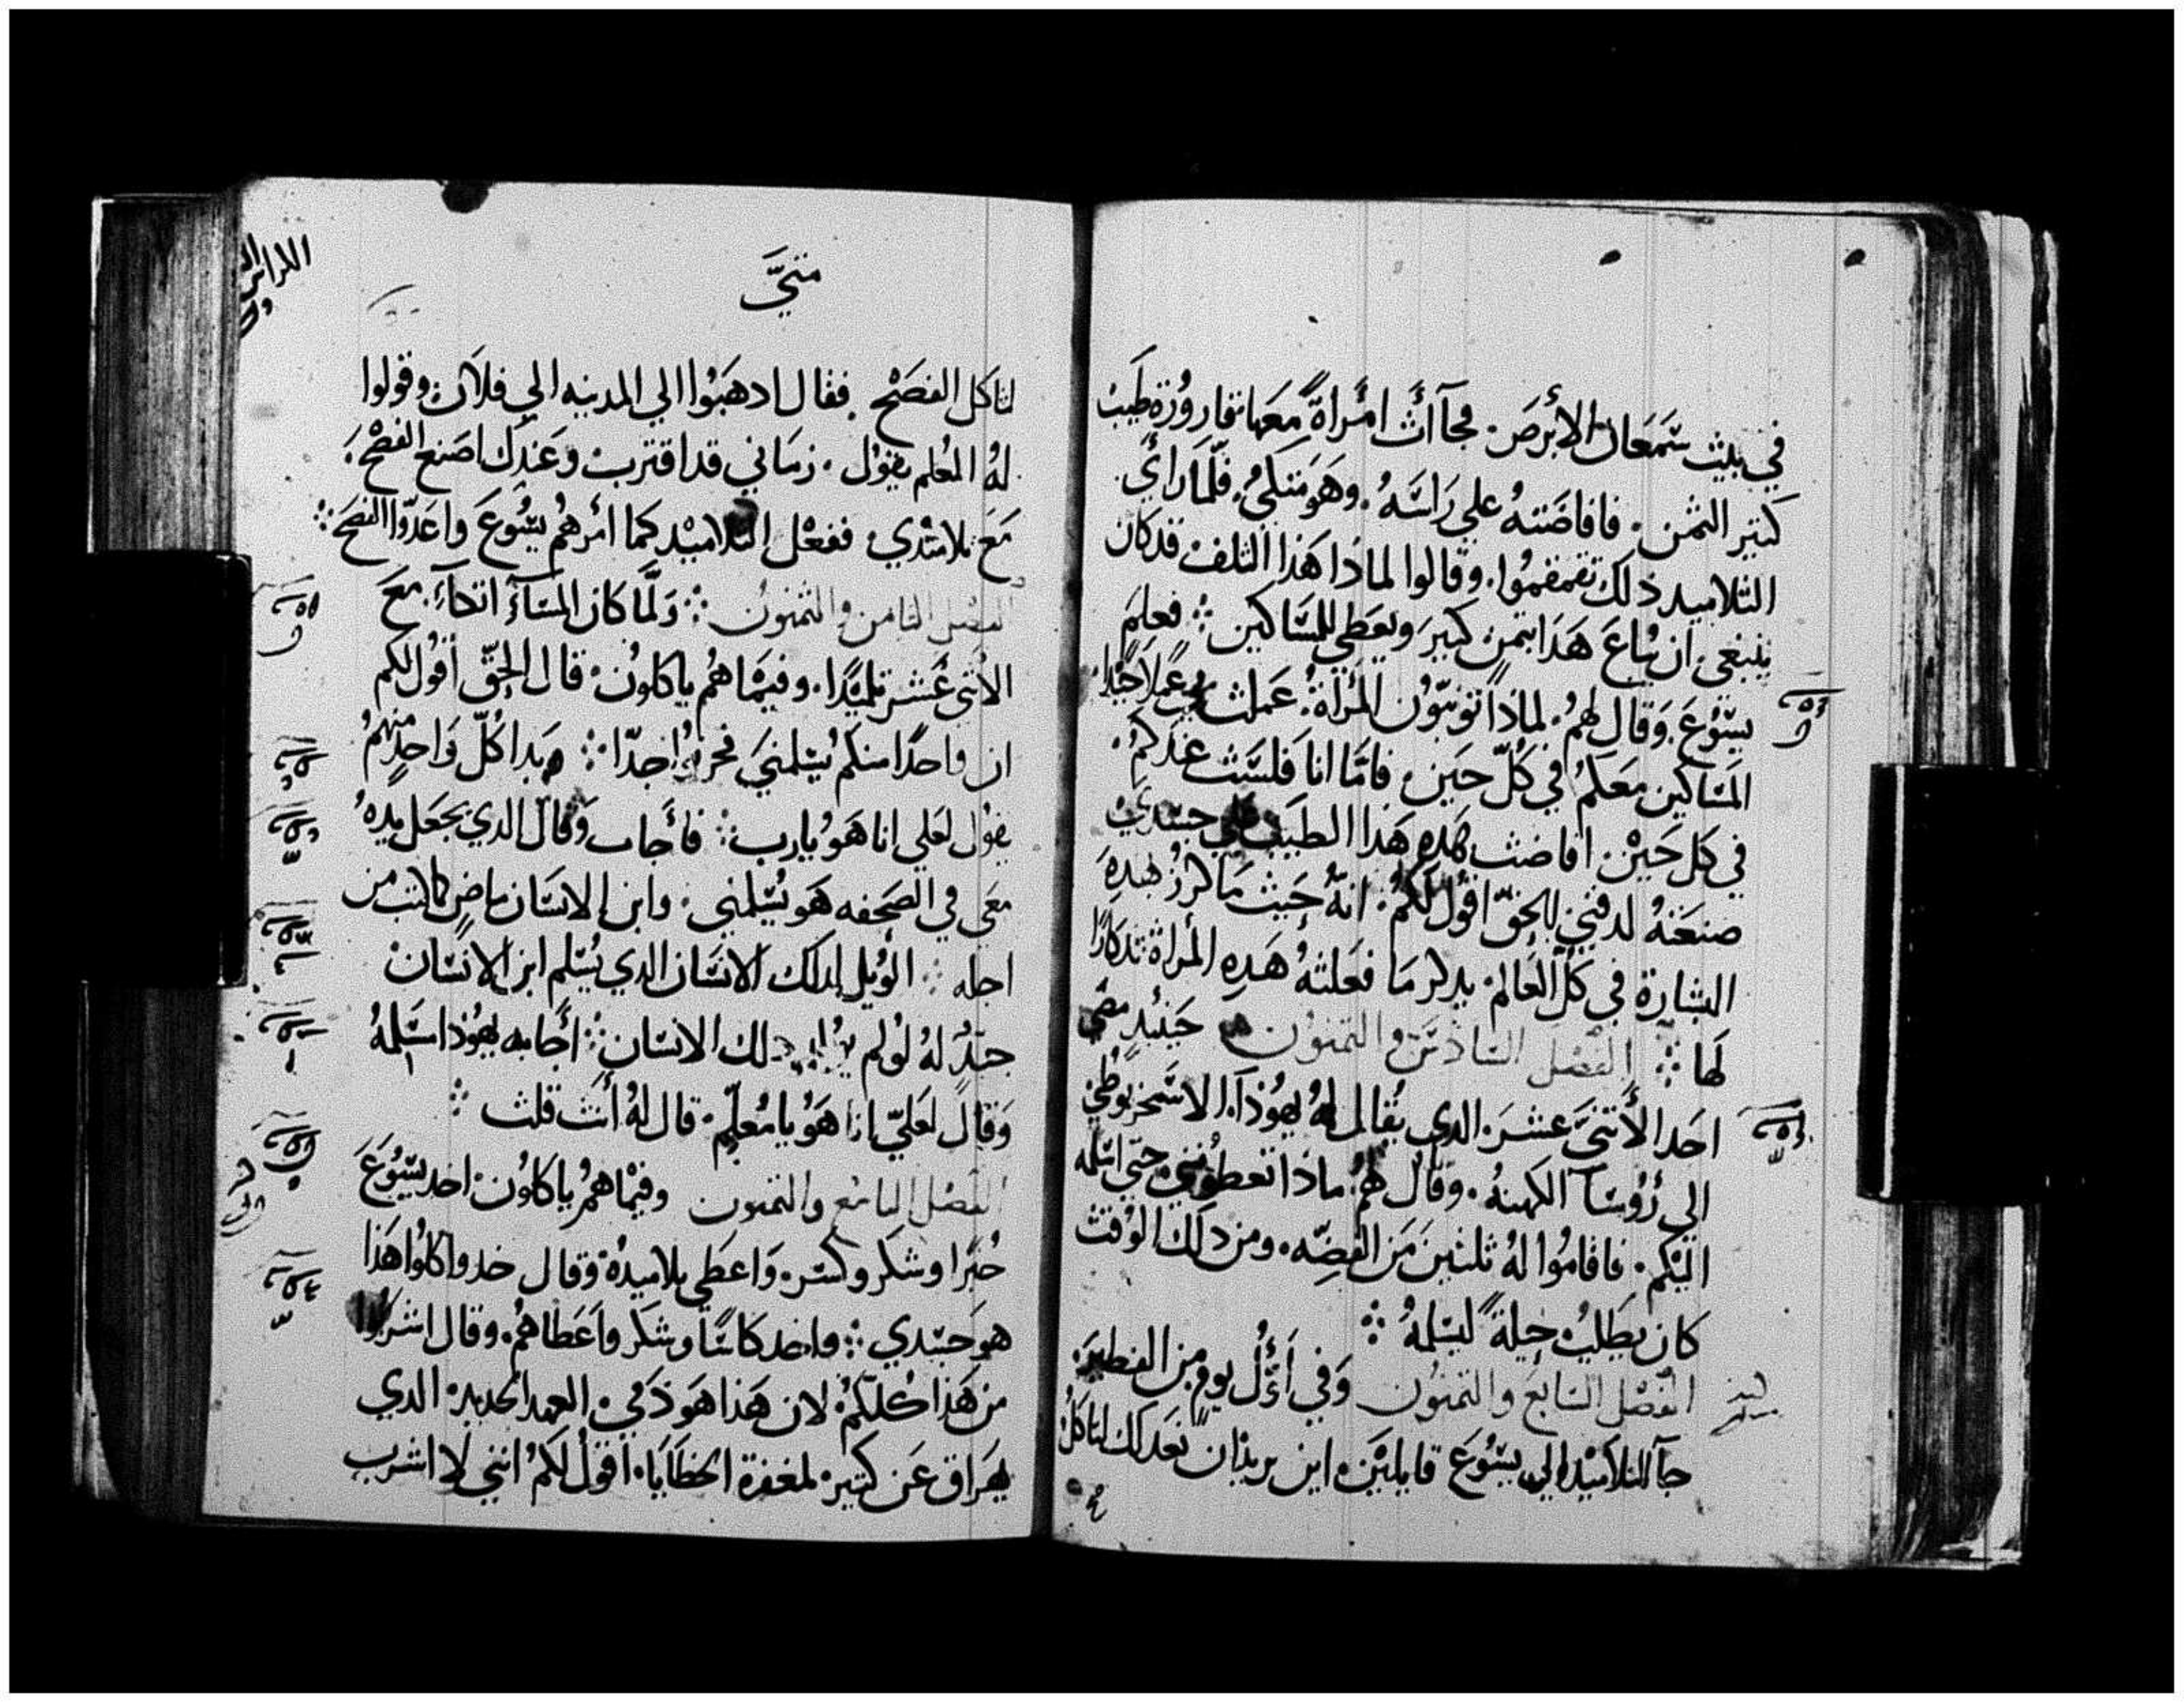 في بيت سَمعَان الأبرَص. فجآأت امرَاةً معَها قارورُة طيَب
كتير الثمن. فافاضَته علي رَاسَهُ. وهَو متكيُ. فلمَا رَاي
التلاميد ذلك تقمقموُا. وقالوا لماذا هَذا التلف قدكان
ينبغي ان يُباعَ هَدَا بتمن كبيرَ ويعَطي للمسَاكين ؞ فعلمَ
يسَوُعَ. وَقال لهمُ. لماذاً توبّوُن المَرُاة: عَملت بي عَملاً جَيّدا
المَسَاكين معَكمُ في كُلّ حيَن. فامَّا انا فلسَت عندكمُ.
في كل حَينْ. افاضت هَده هَدا الطيَب علي جسَدي
صنعَتهُ لدفني. الحَقّ اقوُل لكمُ. انهُ حَيثُ مَا كرزُ بهَدِهِ
البشارة في كلّ العَالم. يدكر مَا فعَلتهُ هَدِهِ المرُاة تدكارًا
لهَا ؞ الفَصَل السَادسَ والتمنوُن حَينيدٍ مضي
احَد الأتنيَ عشرَ. الدي يُقال لهُ يهوُدَا. الاسَخريوُطي
الي رُؤسَآ الكهنهُ. وقال لهمُ. ماذا تعطوُني حتي اسَلمه
اليْكم. فاقامُوا لهُ ثلثينَ منَ الفضّه. ومن دلك الوُقت
كان يطَلبُ حيلةً ليسَلمهُ ؞
الفَصَل السَابعَ والتمنوُن وَفي أوّل يوم من الفطيرَ.
جآ التلاميْد الي يسَوُعَ قايليْنَ. اين تريدُان نُعَد لك لتاكلُ
متيَّ
لتاكل الفصَحْ. فقال ادهَبوُا الي المدينه الي فلاَن. وقولوا
لهُ المعُلم يقوُل. زمَاني قد اقترب. وعَندك اصَنع الفصْح.
مَعَ تلامَيْدي. ففعْل التلاميْد كما امرهُم يسَوُعَ واعَدّوا الفصَحَ ؞
الفصَل التامن والتمنون ؞ وَلمَّا كان المسَآءُ اتكآء. معَ
الأتنيَ عَشر تلميْدًا. وفيمَا هُم ياكلوُن. قال الحَقّ اقوُل لكم
ان واحدًا منكم يُسَلمنيَ فحزنوُا جدّا ؞ وبَدا كُلّ وَاحدٍ منهمُ
يقوُل لعَلي انا هَو يارب ؞ فأجَاب وَقال الدي يجَعَل يدهُ
معَي في الصَحفه هَو يُسَلمني. وابن الانسَان ماضٍ كالمكتوب من
اجله ؞ الوُيل لدلك الانسَان الدي يُسَلم ابن الانسَان
جَيّدُ لهُ لوُلم يوُلد دلك الانسَان ؞ أجَابه يهوُدا مسَلمهُ
وَقال لعَليّ انا هَوُ يامُعلّم. قال لهُ أنتَ قلت ؞
الفَصَل التاسَع والتمنون وفيْما همُ ياكلوُن. اخد يسَوُعَ
خُبزًا وشكر وكسَر. وَاعَطي تلاميدُه وَقال خدوا كلوُا هَدَا
هو جسَدي ؞ واخد كاسًا وشكر واَعَطَاهمُ. وقال اشربوُا
من هَدَا كلكمُ لان هَدا هَو دَمي. العهد الجديد. الدي
يهَراق عَن كتيرْ. لمغفرة الخطَايَا. اقوُل لكمُ انني لا اشرب